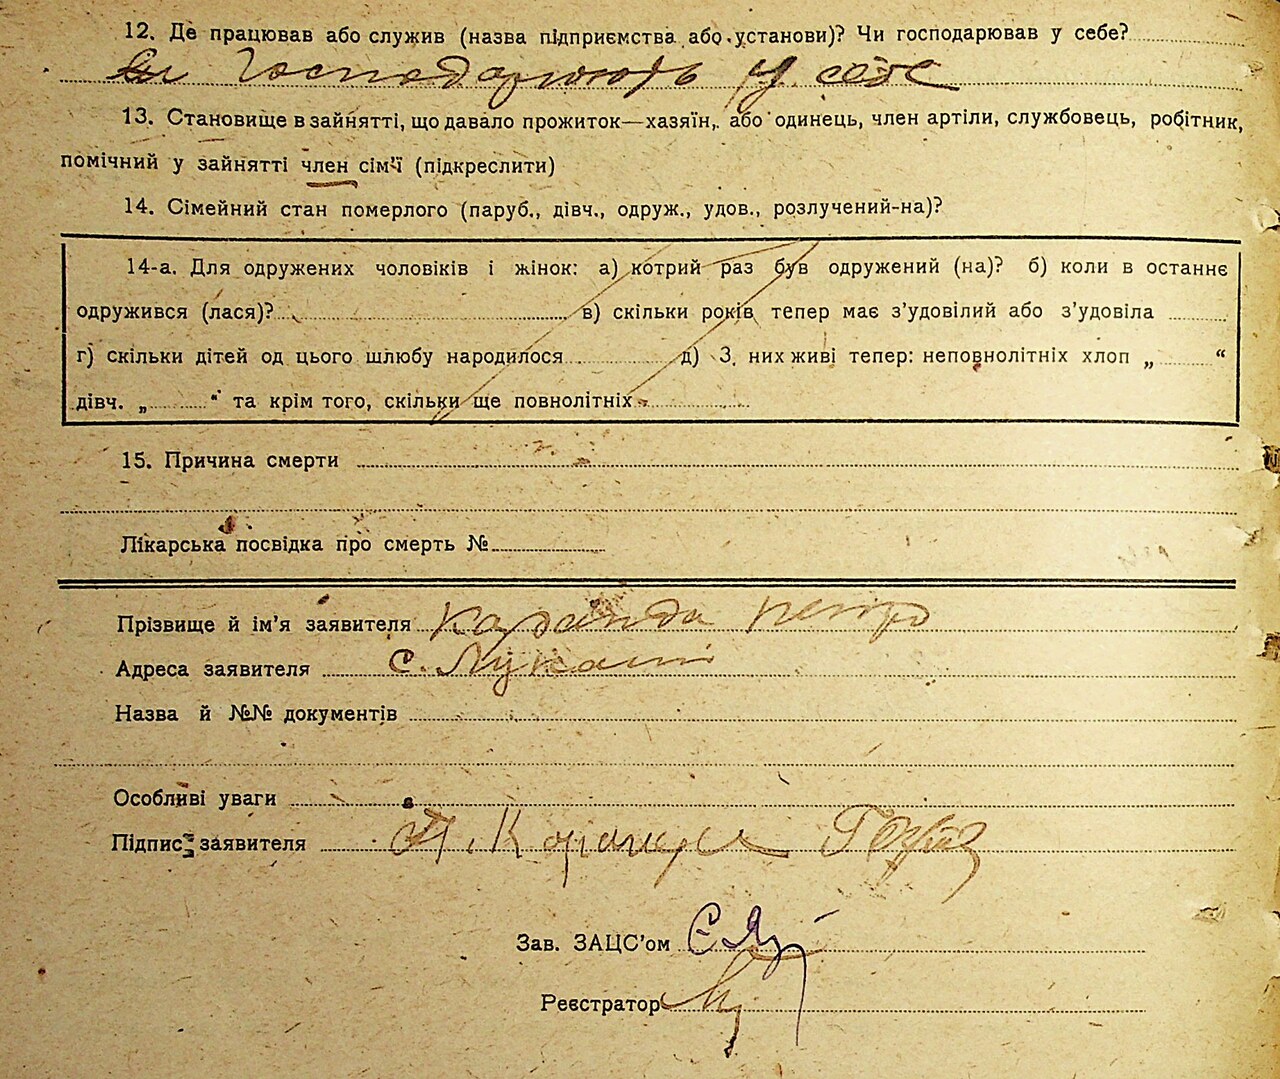 12. Де працював або служив (назва підприємства або установи)? Чи господарював у себе?
Господарюють у себе
13. Становище в зайнятті, що давало прожиток—хазяїн, або одинець, член артіли, службовець, робітник,
помічний у зайнятті член сім'ї (підкреслити)
14. Сімейний стан померлого (паруб., дівч., одруж., удов., розлучений-на)?
14-а. Для одружених чоловіків і жінок: а) котрий раз був одружений (на)? б) коли в останнє
одружився (лася)? в) скільки років тепер має з'удовілий або з'удовіла
г) скільки дітей од цього шлюбу народилося д) З них живі тепер: неповнолітніх хлоп „ “
дівч. „ “ та крім того, скільки ще повнолітніх
15. Причина смерти
Лікарська посвідка про смерть №
Прізвище й ім'я заявителя Петро
Адреса заявителя с. Лукаші
Назва й №№ документів
Особливі уваги
Підпис заявителя
Зав. ЗАЦС'ом
Реєстратор